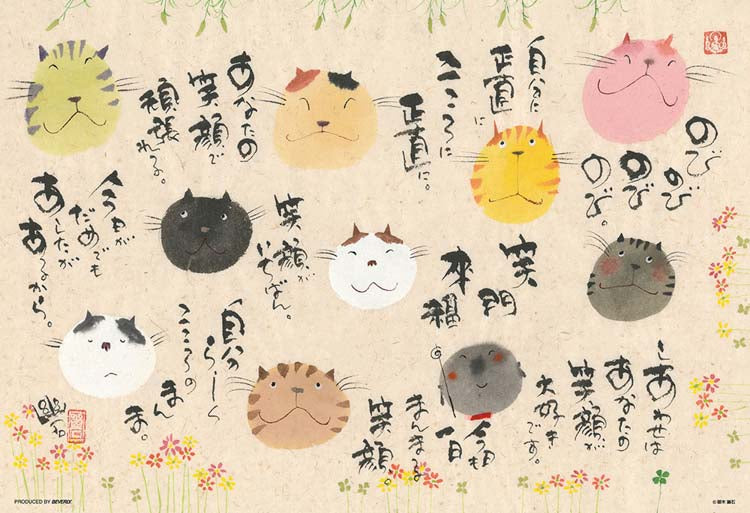 のび
のび
のび
のび。
自分に
正直に
こころに
正直に。
あなたの
笑顔で
頑張れる。
しあわせは
あなたの
笑顔が
大好き
です。
笑門
来福
笑顔が
いちばん。
今日が
だめでも
あしたが
あるから。
今日も
一日
まんまるな
笑顔。
自分
らしく
こころの
まんま。
PRODUCED BY BEVERLY